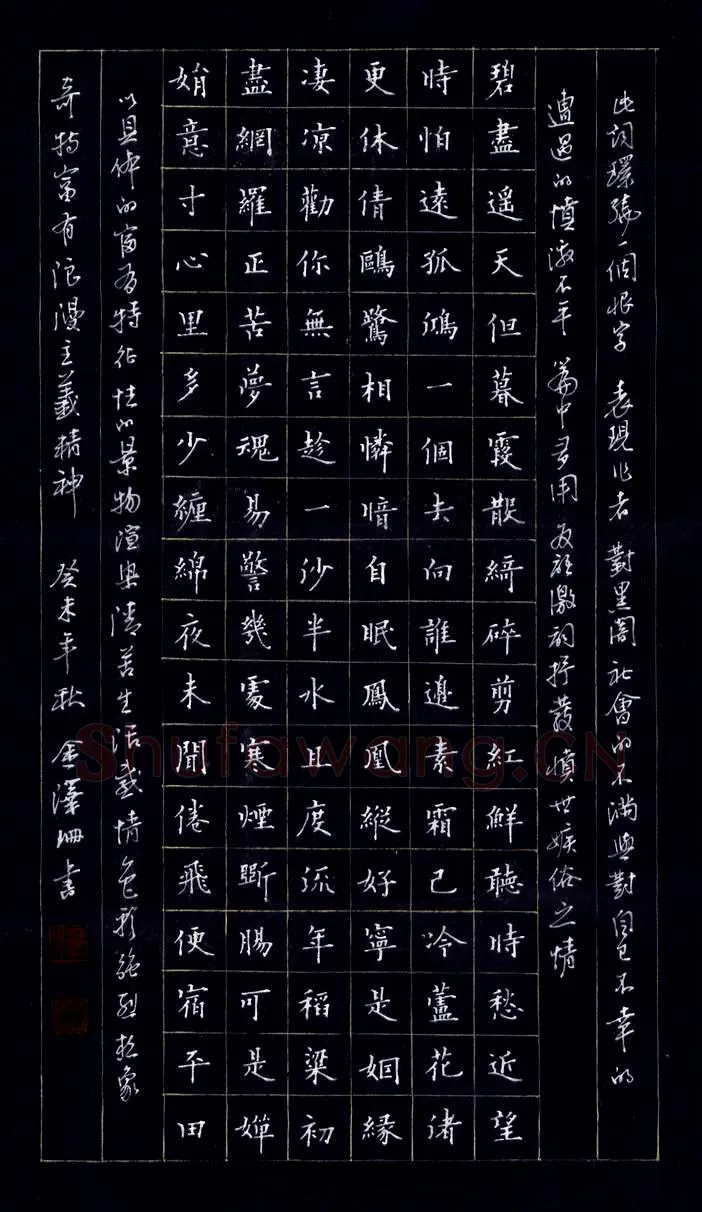 此詞環繞一個恨字 表現作者對黑闇社會的不滿與對自己不幸的
遭遇的憤激不平 篇中多用 激詞抒發憤世嫉俗之情
碧盡遥天但暮霞散綺碎剪紅鮮聽時愁近望
時怕遠孤鴻一個去向誰邊素霜已冷蘆花渚
更休倩鷗驚相憐暗自眠鳳凰縱好寧是姻緣
凄凉勸你無言趁一沙半水且度流年稻粱初
盡網羅正苦夢魂易警幾處寒煙斷腸可是嬋
娟意寸心里多少纏綿夜未聞倦飛便宿平田
以具体的富有特征性的景物渲染清苦生活感情色彩強烈想象
奇特富有浪漫主義精神 癸未年秋 金澤珊書
Shufawang.CN